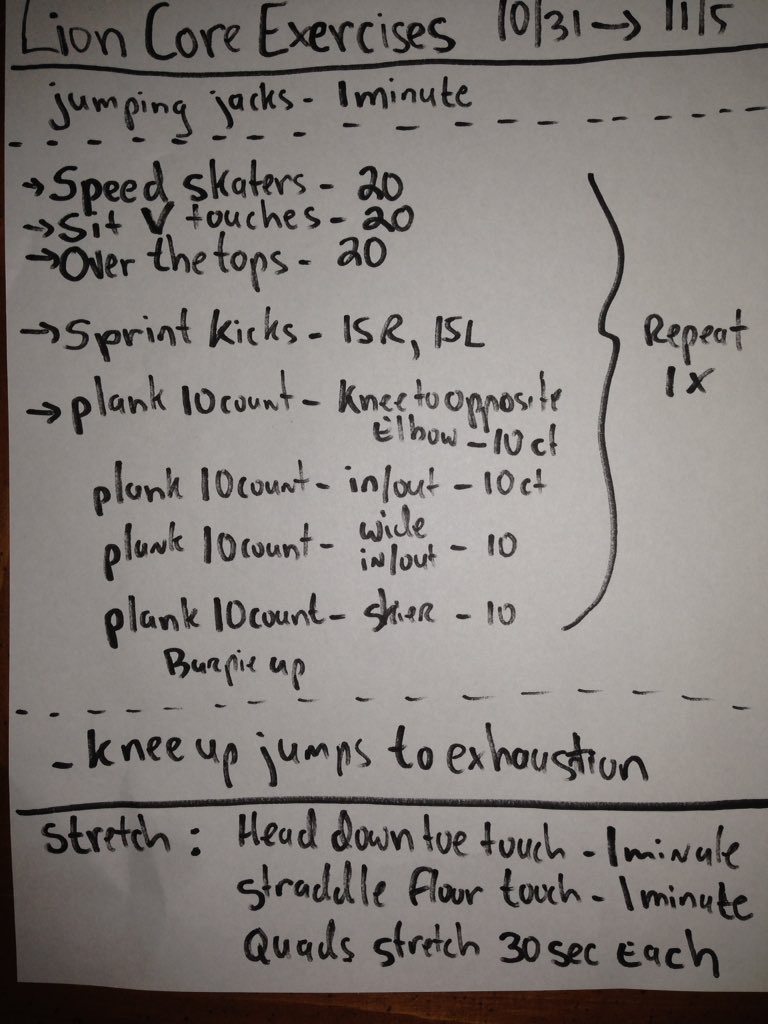 Lion Core Exercises 10/31 → 11/5
jumping jacks - 1 minute
→ Speed skaters - 20
→ Sit V touches - 20
→ Over the tops - 20
→ Sprint kicks - 15R, 15L
Repeat
1X
→ plank 10 count - Knee to opposite
Elbow - 10 ct
plank 10 count - in/out - 10 ct
plank 10 count - wide
in/out - 10
plank 10 count - skier - 10
Burpie up
- knee up jumps to exhaustion
Stretch : Head down toe touch - 1 minute
straddle floor touch - 1 minute
Quads stretch 30 sec Each